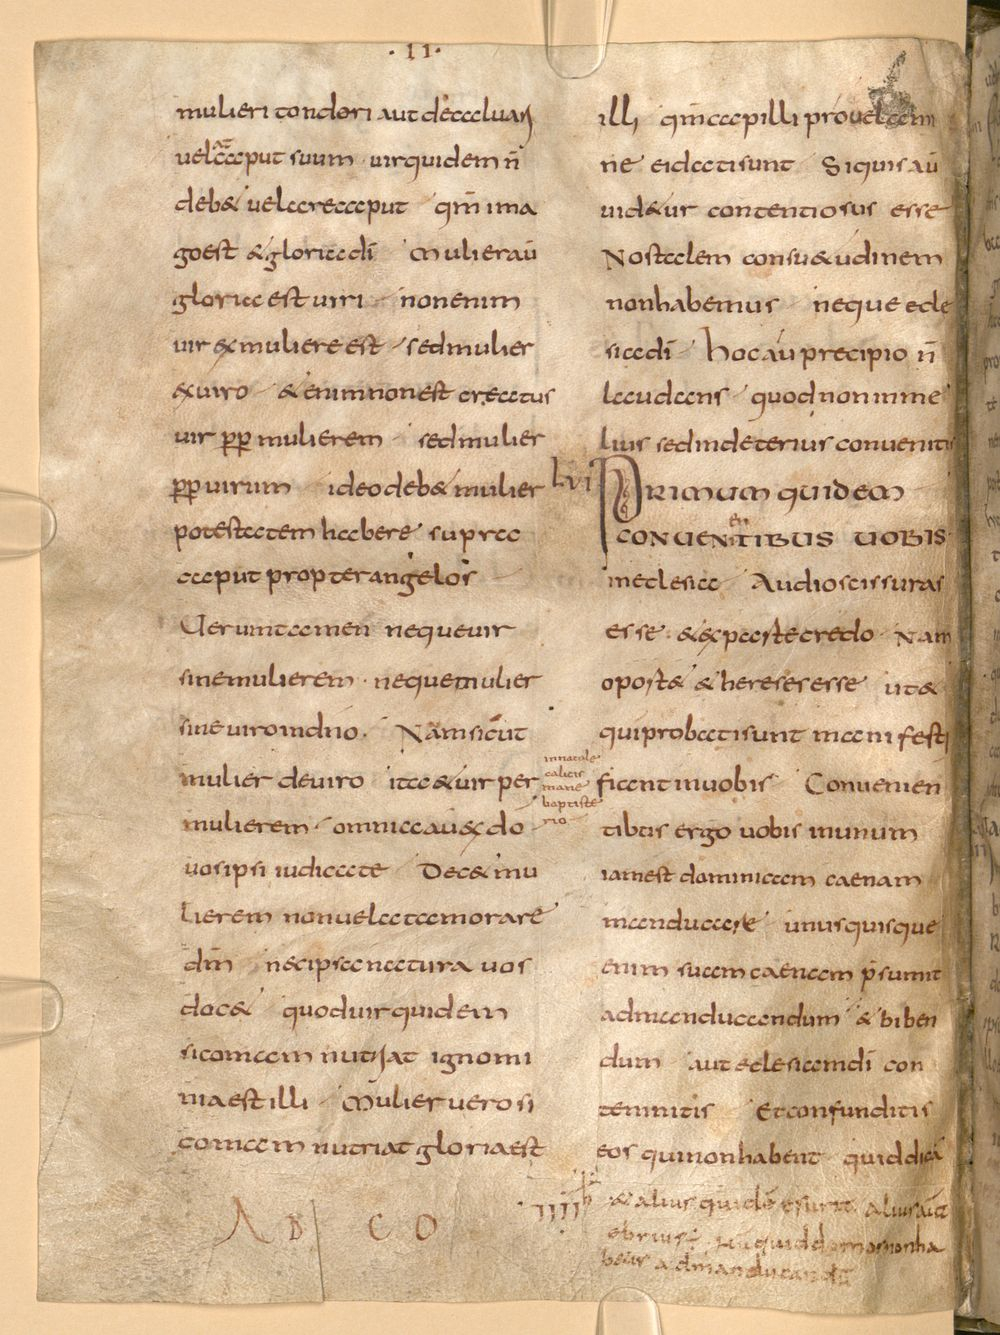 · II ·
mulieri tonderi aut decaluari
uelat caput suum uir quidem n̄
deb& uelare caput qm̄ ima
go est & gloria dī Mulier aū
gloria est uiri non enim
uir ex muliere est sed mulier
ex uiro & enim non est creatus
uir ꝓp mulierem sed mulier
ꝓp uirum ideo deb& mulier
potestatem habere supra
caput propter angelos
Uerumtamen neque uir
sine mulierem · neque mulier
sine uiro in dn̄o · Nam sicut
mulier de uiro ita & uir per
mulierem · omnia aū ex dō
uos ipsi iudicate Dec& mu
lierem non uelatam orare
dm̄ nec ipsa natura uos
doc& quod uir quidem
si comam nutriat ignomi
nia est illi Mulier uero si
comam nutriat gloria est
A B C O
illi qm̄ capilli pro uelami
ne ei dati sunt Si quis aū
uid&ur contentiosus esse
Nos talem consu&udinem
non habemus neque ecle
sia dī hoc aū precipio n̄
laudans quod non in me
lius sed in deterius conuenitis
LVI PRIMUM QUIDEM
CONUENIENTIBUS UOBIS
in eclesia Audio scissuras
esse & ex parte credo Nam
oport& & hereses esse ut &
qui probati sunt manifesti
fiant in uobis Conuenien
tibus ergo uobis in unum
iam est dominicam caenam
manducare unusquisque
enim suam caenam p̄sumit
ad manducandum & biben
dum aut eclesiam dī con
temnitis Et confunditis
eos qui non habent quid dicā
& alius quidē esurit alius aūt
ebrius ÷ nūquid domos non ha
betis ad manducandū
in natale
calicis
mane
baptiste
rio